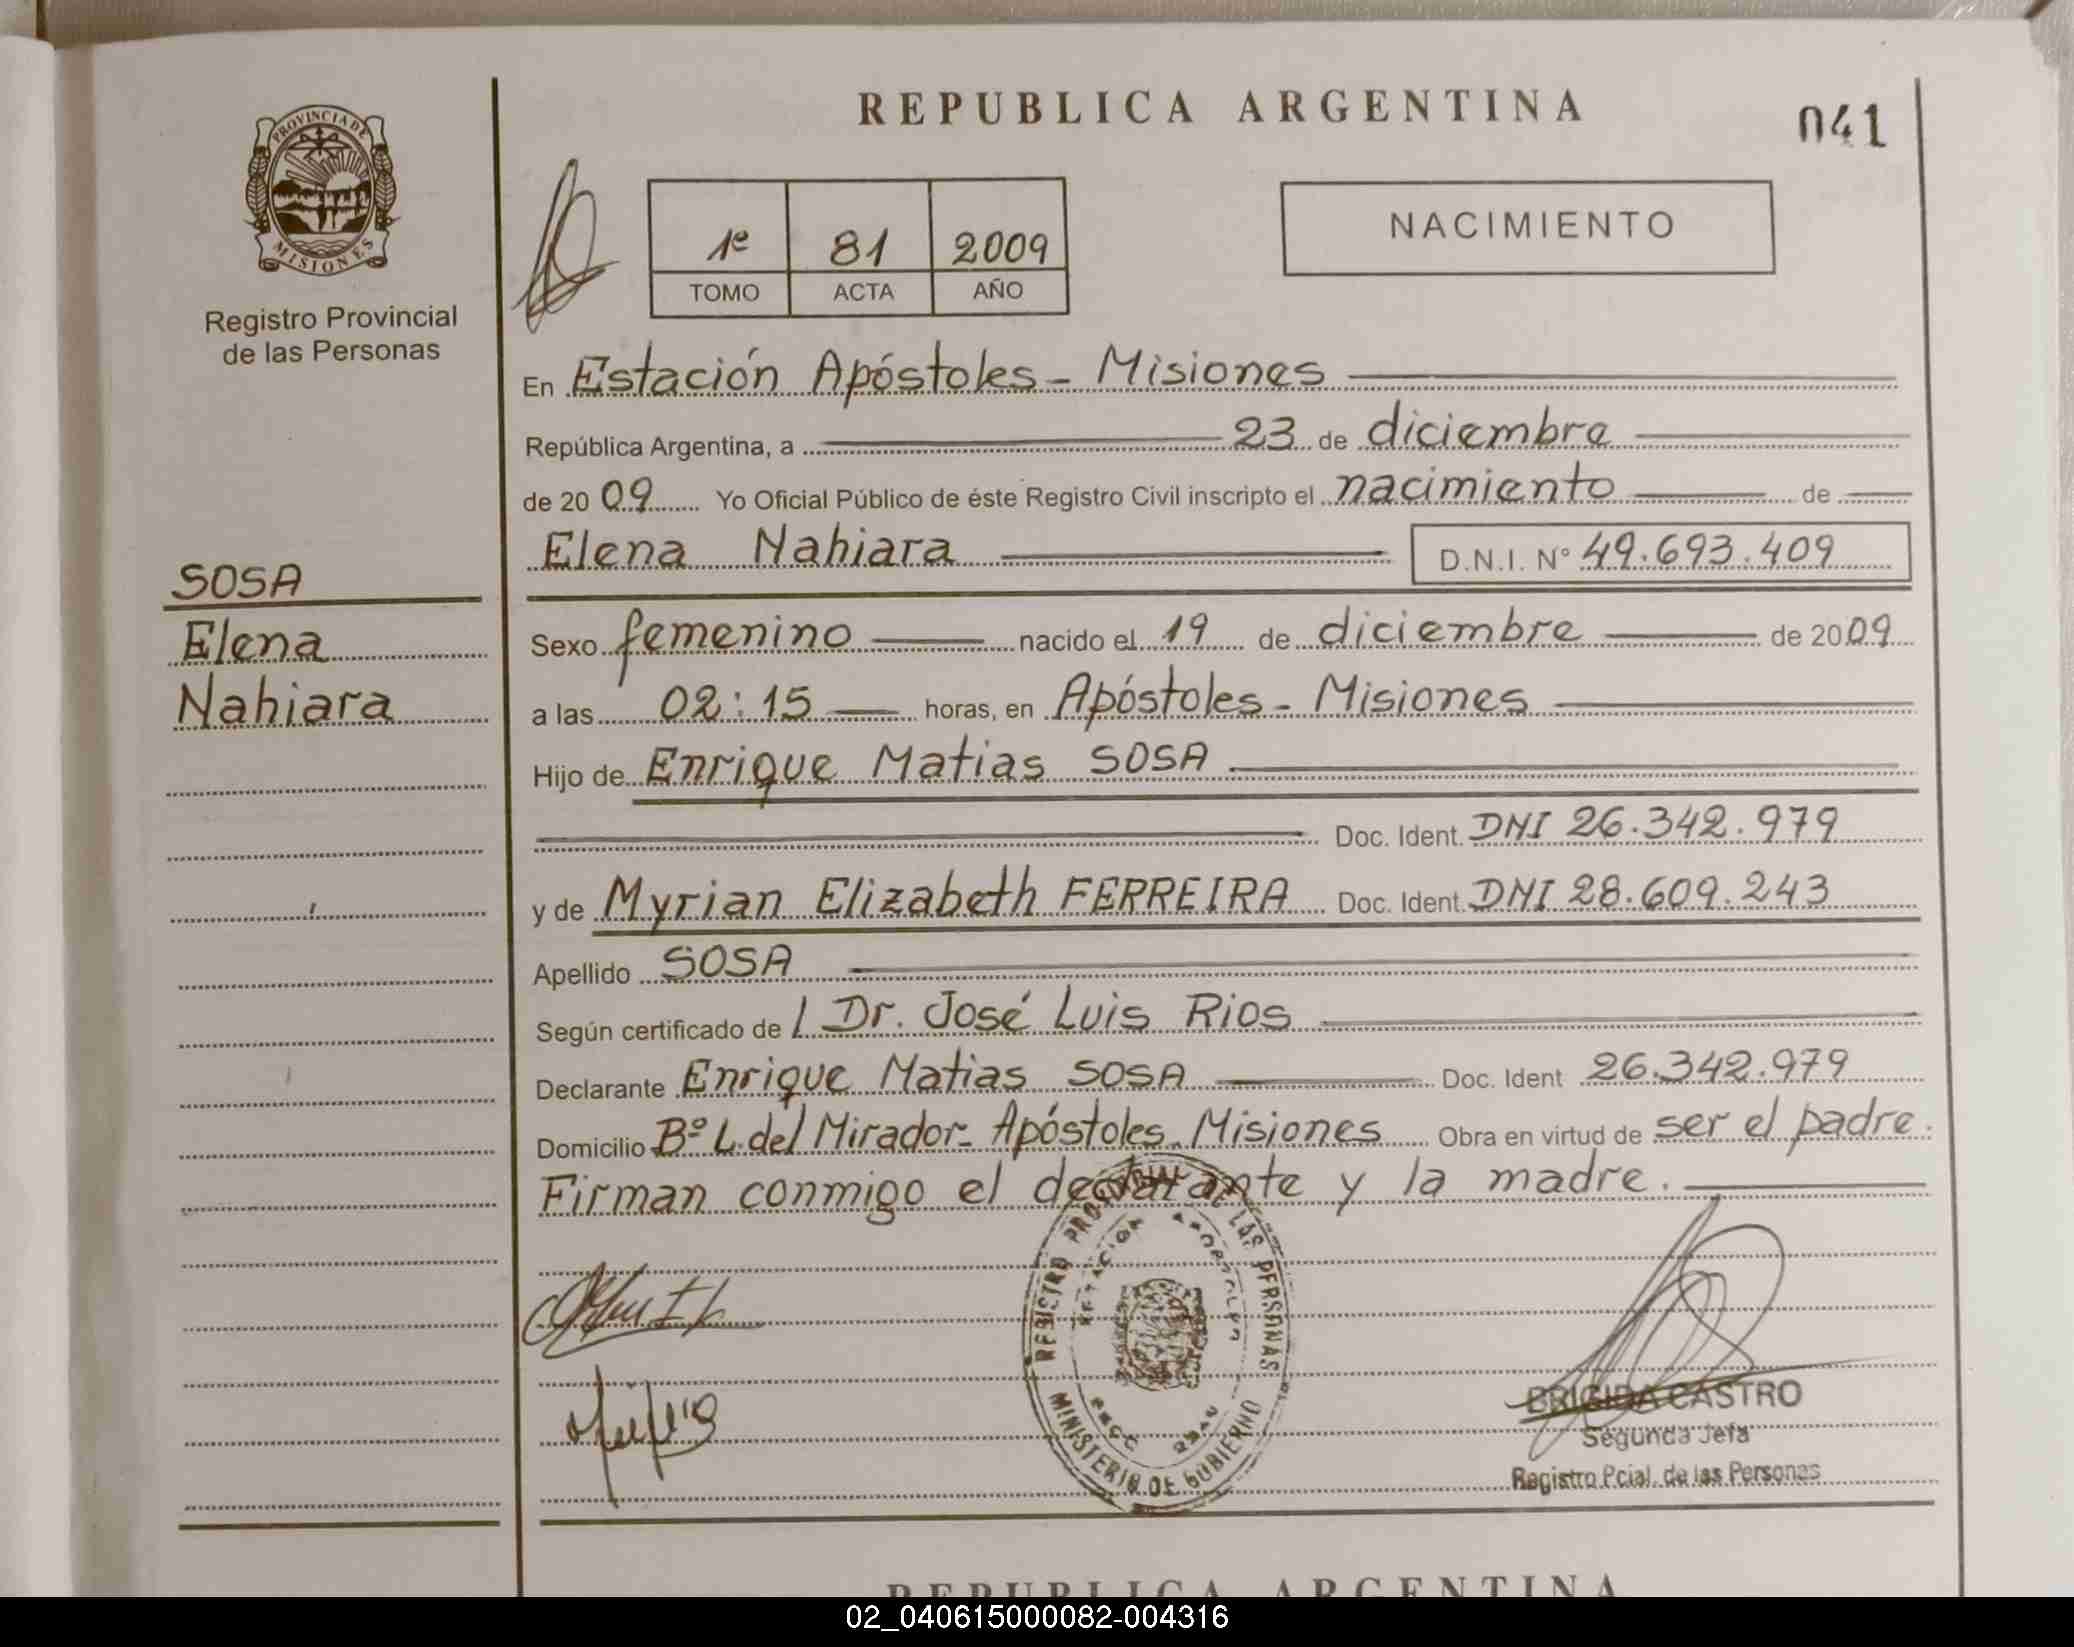 REPUBLICA ARGENTINA
041
PROVINCIA DE
MISIONES
Registro Provincial
de las Personas
1º 81 2009
TOMO ACTA AÑO
NACIMIENTO
En Estación Apóstoles - Misiones
República Argentina, a 23 de diciembre
de 20 09 Yo Oficial Público de éste Registro Civil inscripto el nacimiento de
Elena Nahiara D.N.I. Nº 49.693.409
SOSA
Elena
Nahiara
Sexo femenino nacido el 19 de diciembre de 20 09
a las 02:15 horas, en Apóstoles - Misiones
Hijo de Enrique Matias SOSA
Doc. Ident. DNI 26.342.979
y de Myrian Elizabeth FERREIRA Doc. Ident. DNI 28.609.243
Apellido SOSA
Según certificado de Dr. José Luis Rios
Declarante Enrique Matias SOSA Doc. Ident 26.342.979
Domicilio Bº L. del Mirador - Apóstoles - Misiones Obra en virtud de ser el padre.
Firman conmigo el declarante y la madre.
REGISTRO PROVINCIAL DE LAS PERSONAS
MINISTERIO DE GOBIERNO
BRIGIDA CASTRO
Segunda Jefa
Registro Pcial. de las Personas
REPUBLICA ARGENTINA
02_040615000082-004316